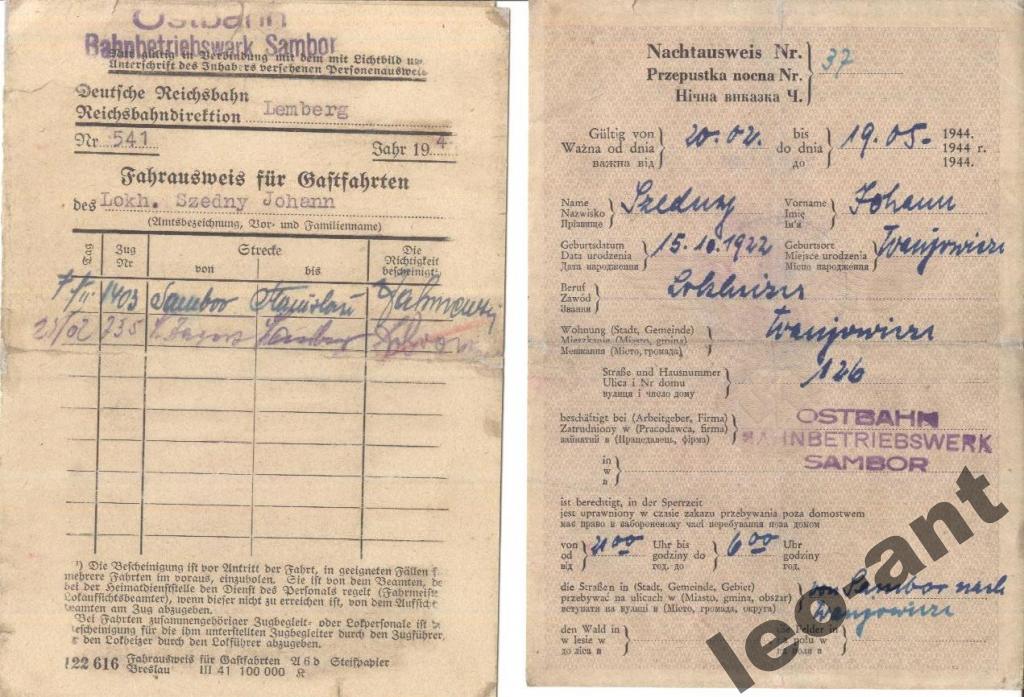 Ostbahn
Bahnbetriebswerk Sambor
Nur gültig in Verbindung mit dem mit Lichtbild u.
Unterschrift des Inhabers versehenen Personenausweis
Deutsche Reichsbahn
Reichsbahndirektion Lemberg
Nr 541
Jahr 194
Fahrausweis für Gastfahrten
des Lokh. Szedny Johann
(Amtsbezeichnung, Vor- und Familienname)
Tag Zug Nr Strecke von bis Die Richtigkeit bescheinigt¹)
1403 Sambor Stanislau
235 Sambor
¹) Die Bescheinigung ist vor Antritt der Fahrt, in geeigneten Fällen f
mehrere Fahrten im voraus, einzuholen. Sie ist von dem Beamten, de
bei der Heimatdienststelle den Dienst des Personals regelt (Fahrmeist
Lokaufsichtsbeamter), wenn dieser nicht zu erreichen ist, von dem Aufsich
beamten am Zug abzugeben.
Bei Fahrten zusammengehöriger Zugbegleit- oder Lokpersonale ist d
Bescheinigung für die ihm unterstellten Zugbegleiter durch den Zugführer,
den Lokheizer durch den Lokführer abzugeben.
122 616 Fahrausweis für Gastfahrten A 6 d Steifpapier
Breslau III 41 100 000 K
Nachtausweis Nr.
Przepustka nocna Nr. 37
Нічна виказка Ч.
Gültig von 20.02. bis 19.05. 1944.
Ważna od dnia do dnia 1944 r.
важна від до 1944.
Name Szedny Vorname Johann
Nazwisko Imię
Прізвище Ім'я
Geburtsdatum 15.10.1922 Geburtsort
Data urodzenia Miejsce urodzenia
Дата народження Місце народження
Beruf Lokheizer
Zawód
Звання
Wohnung (Stadt, Gemeinde)
Mieszkanie (Miasto, gmina)
Мешкання (Місто, громада)
Straße und Hausnummer 126
Ulica i Nr domu
вулиця і число дому
beschäftigt bei (Arbeitgeber, Firma) OSTBAHN
Zatrudniony w (Pracodawca, firma) BAHNBETRIEBSWERK
зайнятий в (Працедавець, фірма) SAMBOR
in
w
в
ist berechtigt, in der Sperrzeit
jest uprawniony w czasie zakazu przebywania poza domostwem
має право в забороненому часі перебування поза домом
von Uhr bis 6 00 Uhr
od godziny do godziny
від год. до год.
die Straßen in (Stadt, Gemeinde, Gebiet) von Sambor nach
przebywać na ulicach w (Miasto, gmina, obszar)
вступати на вулиці в (Місто, громада, округа)
den Wald in die Felder in
w lesie w na polu w
до ліса в на поля в
lexcant